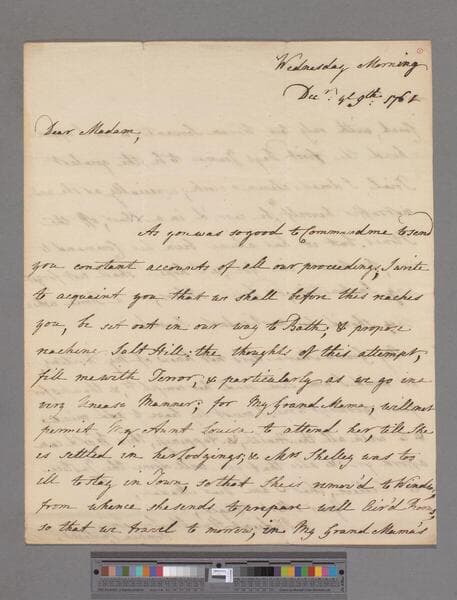 Wednesday Morning
Decr. ye. 9th. 1761
Dear Madam,
As you was so good to Command me to send
you constant accounts of all our proceedings, I write
to acquaint you that we shall before this reaches
you, be set out in our way to Bath; & propose
reaching Salt Hill: the thoughts of this attempt,
fill me with Terror, & particularly as we go in a
very Uneasie Manner; for My Grand Mama, will not
permit My Aunt Louisa to attend her, till She
is settled in her Lodgings; & Mrs Shelley was too
ill to stay in Town, so that She is remov'd to
from whence she sends to prepare well Air'd Rooms,
so that we travel to morrow, in My Grand Mama's